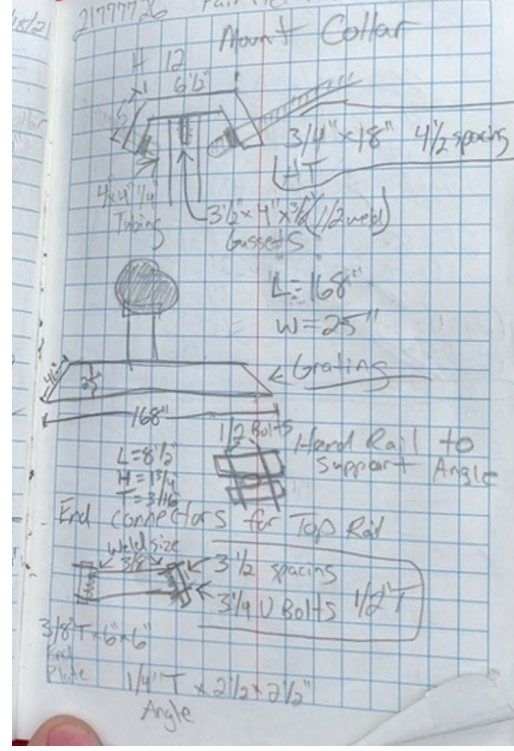 21777726
Mount Collar
H 12
6 1/2"
5"
3/4" x 18" 4 1/2 spacing
HT
4x4" 1/4"
Tubing
3 1/2" x 4" x 3/8" (1/2 weld)
Gussets
L=168"
W=25"
Grating
46"
25"
168"
1/2 Bolts
Hand Rail to
Support Angle
L=8 1/2
H=1 3/4
T=3/16
End connectors for Top Rail
Weld size
3/8
3 1/2 spacing
3 1/4 U Bolts 1/2"T
3/8"T x 6" x 6"
End
Plate
1/4"T x 2 1/2 x 2 1/2"
Angle